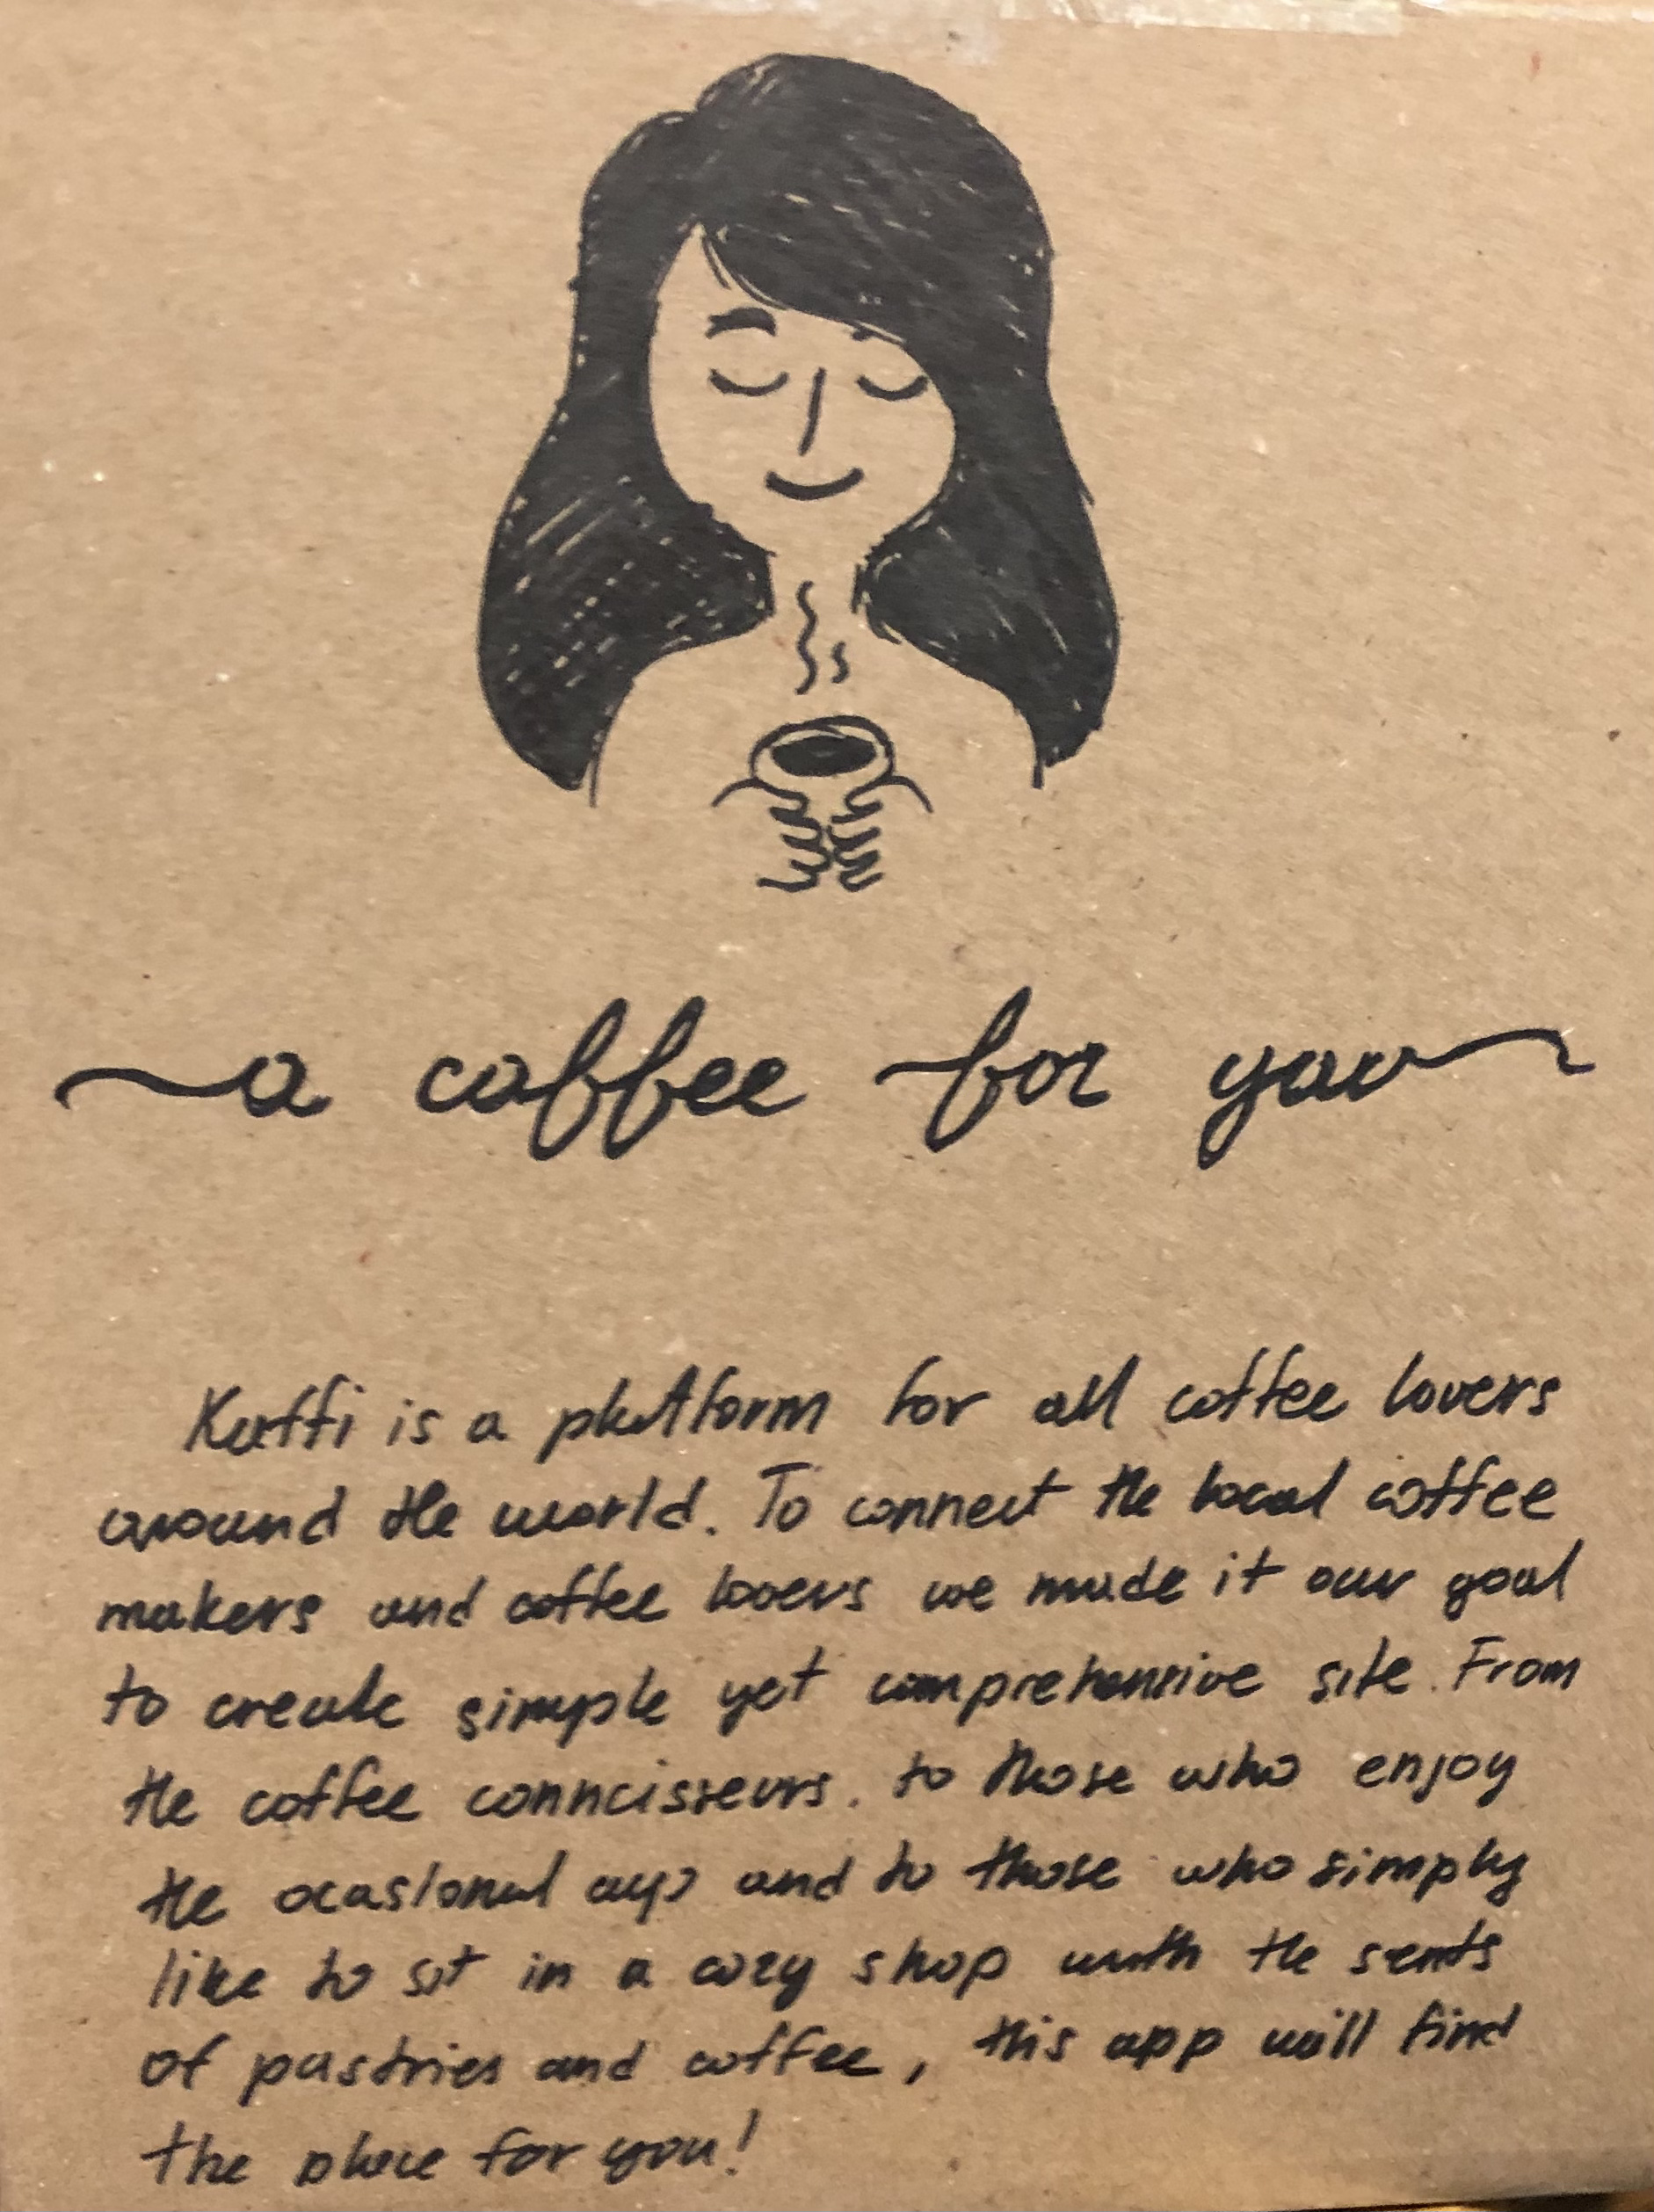 a coffee for you
Kaffi is a platform for all coffee lovers
around the world. To connect the local coffee
makers and coffee lovers we made it our goal
to create simple yet comprehensive site. From
the coffee conncisseurs. to those who enjoy
the ocasional cup and to those who simply
like to sit in a cozy shop with the sents
of pastries and coffee, this app will find
the place for you!